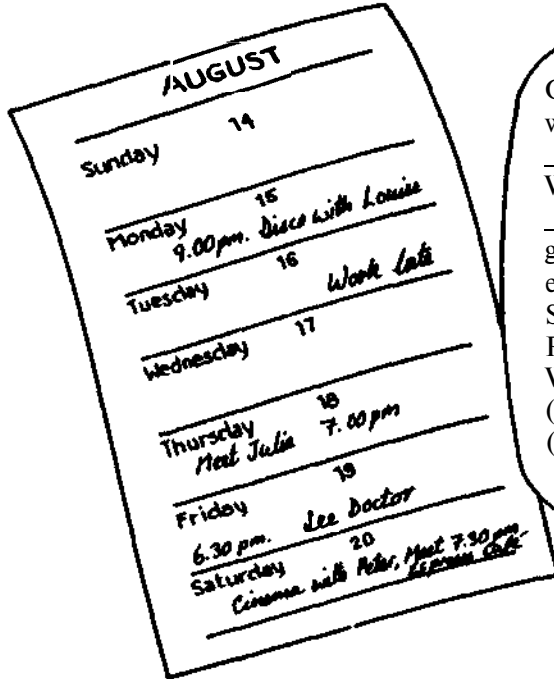 AUGUST
14
Sunday
15
Monday
9.00pm. Disco with Louise
16
Tuesday
Work late
17
Wednesday
18
Thursday
Meet Julia 7.00pm
19
Friday
6.30 pm. See Doctor
20
Saturday
Cinema with Peter, Meet 7.30pm
Espresso Café